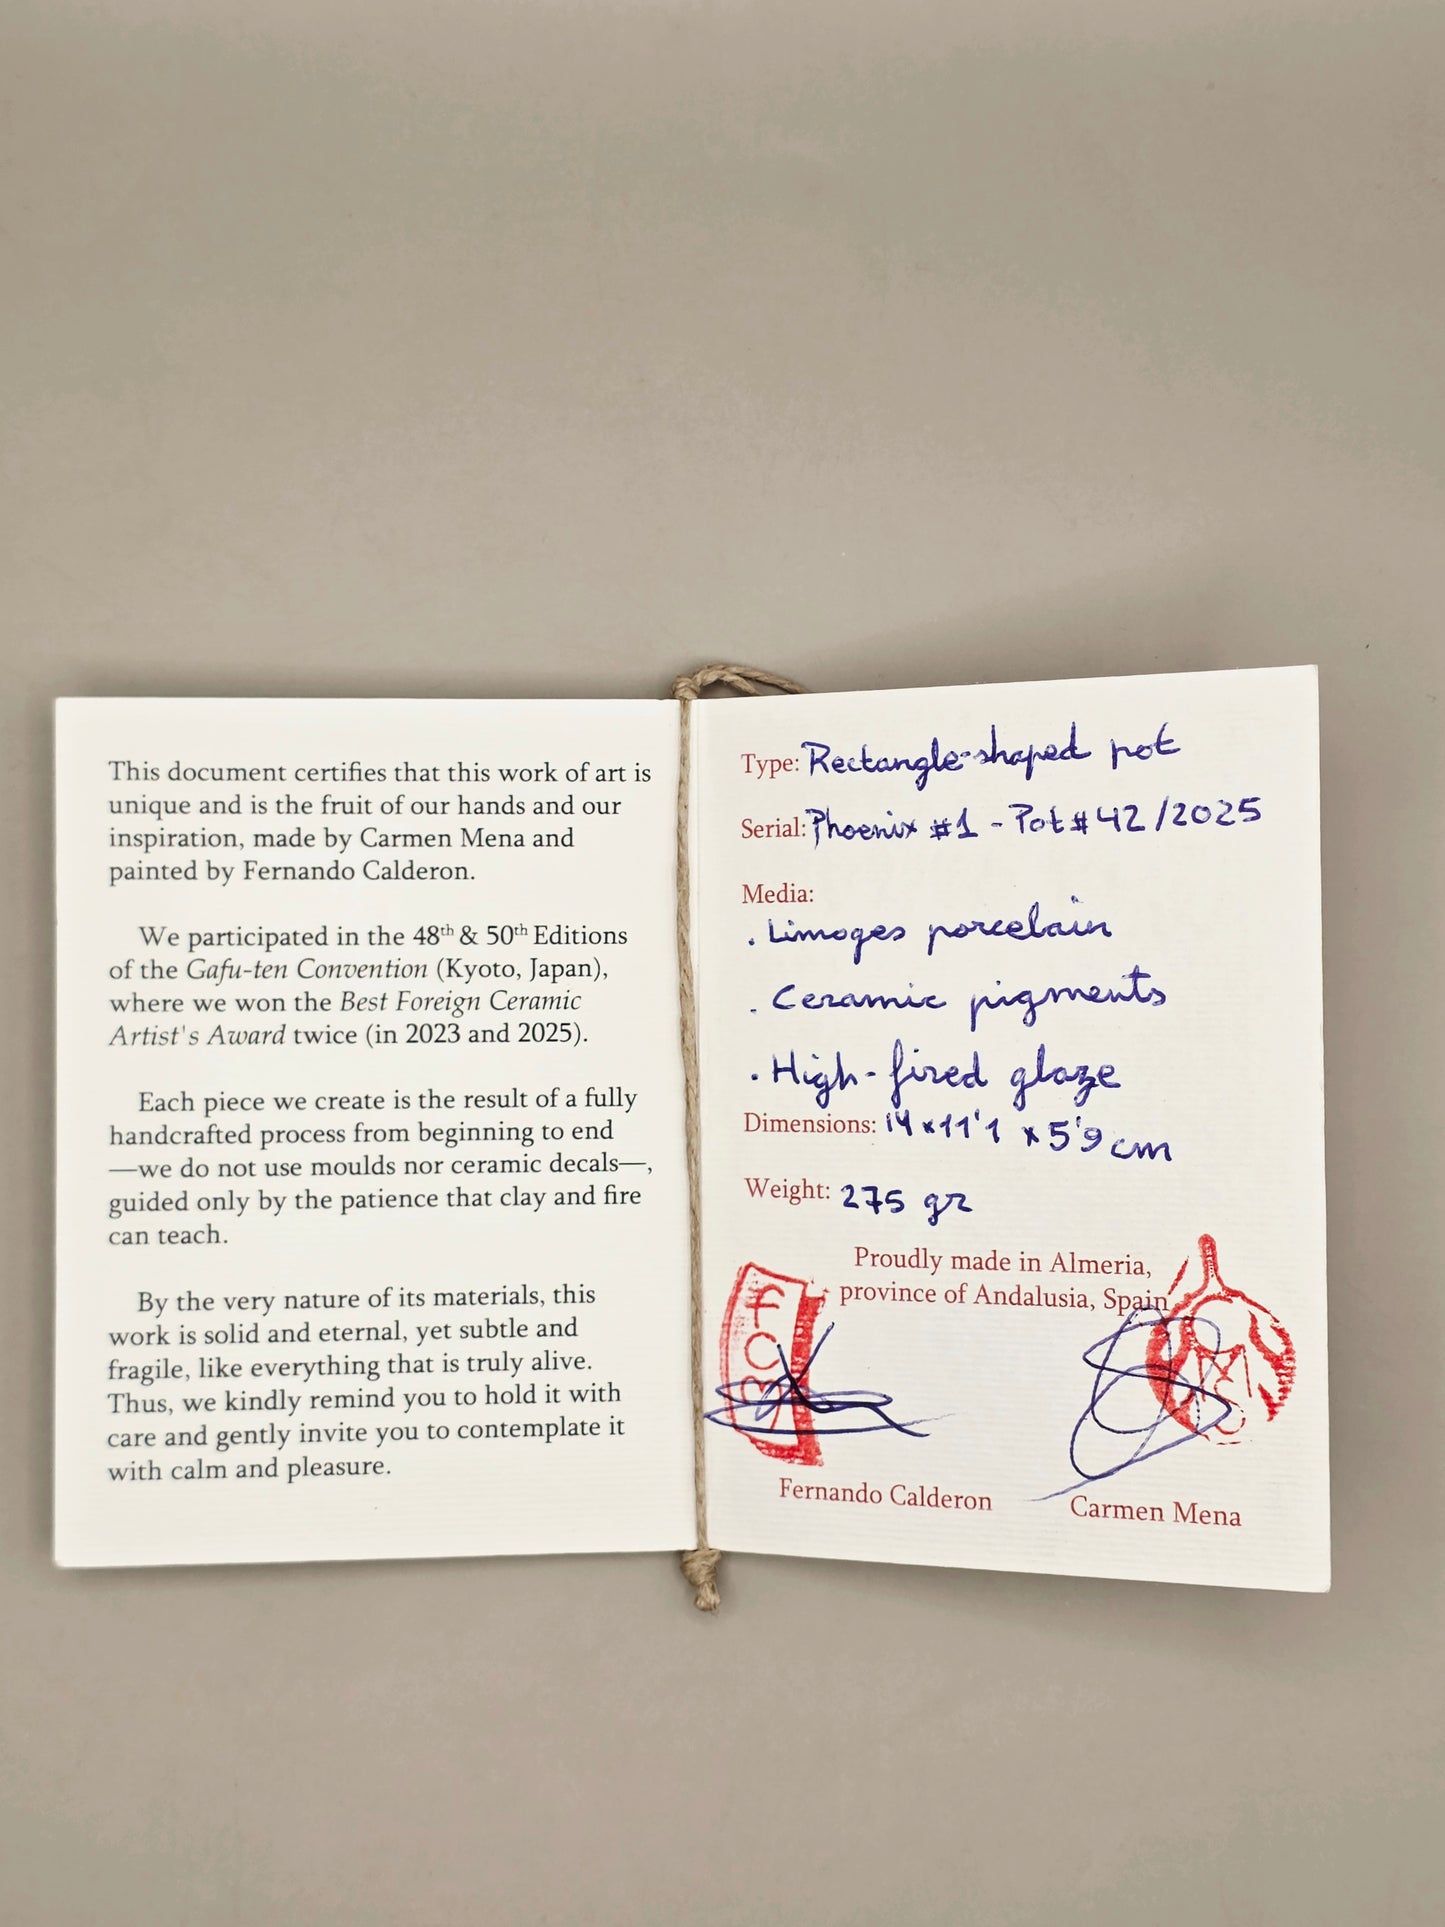 This document certifies that this work of art is
unique and is the fruit of our hands and our
inspiration, made by Carmen Mena and
painted by Fernando Calderon.
We participated in the 48th & 50th Editions
of the Gafu-ten Convention (Kyoto, Japan),
where we won the Best Foreign Ceramic
Artist's Award twice (in 2023 and 2025).
Each piece we create is the result of a fully
handcrafted process from beginning to end
—we do not use moulds nor ceramic decals—,
guided only by the patience that clay and fire
can teach.
By the very nature of its materials, this
work is solid and eternal, yet subtle and
fragile, like everything that is truly alive.
Thus, we kindly remind you to hold it with
care and gently invite you to contemplate it
with calm and pleasure.
Type: Rectangle-shaped pot
Serial: Phoenix #1 - Pot #42/2025
Media:
. Limoges porcelain
. Ceramic pigments
. High-fired glaze
Dimensions: 14 x 11'1 x 5'9 cm
Weight: 275 gr
Proudly made in Almeria,
province of Andalusia, Spain
Fernando Calderon
Carmen Mena